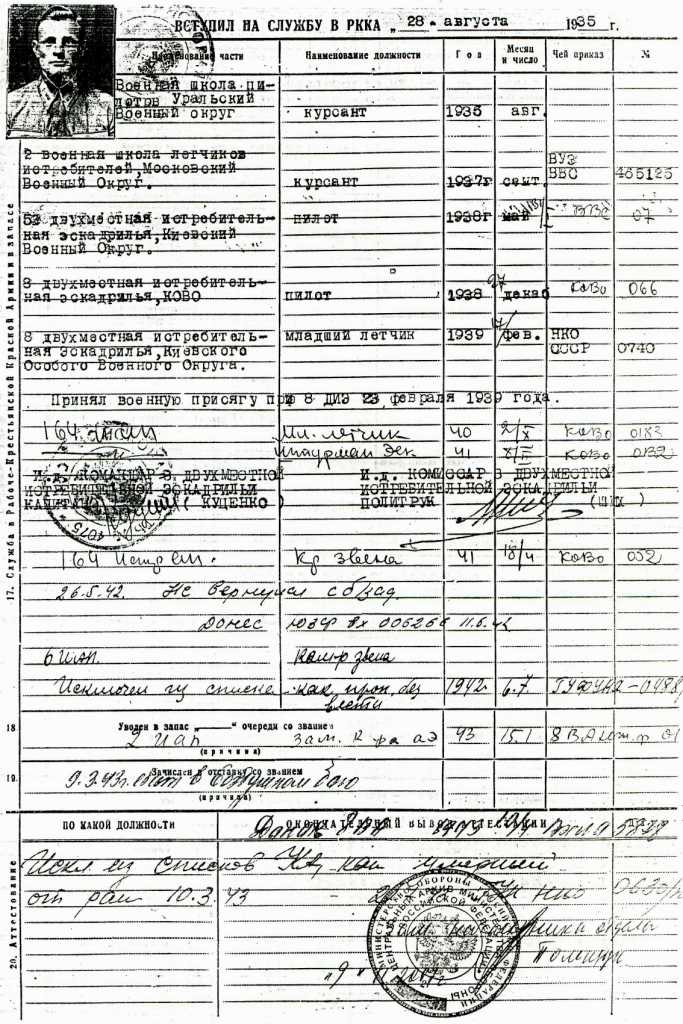 ВСТУПИЛ НА СЛУЖБУ В РККА „28“ августа 1935 г.
Наименование части Наименование должности Год Месяц и число Чей приказ №
Военная школа пи-
лотов Уральский
Военный округ курсант 1935 авг.
2 военная школа летчиков
истребителей,Московский
Военный Округ. курсант 1937г сент. ВУЗ ВВС 465125
53 двухместная истребитель-
ная эскадрилья,Киевский
Военный Округ. пилот 1938г май ВВС 07
8 двухместная истребитель-
ная эскадрилья,КОВО пилот 1938 27 декаб КОВО 066
8 двухместная истребитель-
ная эскадрилья,Киевского
Особого Военного Округа. младший летчик 1939 17/фев. НКО СССР 0740
Принял военную присягу при 8 ДИЭ 23 февраля 1939 года.
164 Мл. летчик 40 2/X КОВО 0183
Штурман эск 41 КОВО 0132
И.д. КОМАНДИР 8 ДВУХМЕСТНОЙ И.д. КОМИССАР 8 ДВУХМЕСТНОЙ
ИСТРЕБИТЕЛЬНОЙ ЭСКАДРИЛЬИ ИСТРЕБИТЕЛЬНОЙ ЭСКАДРИЛЬИ
КАПИТАН ( КУЦЕНКО ) ПОЛИТРУК (ШИХ )
164 Истр Кр звена 41 18/4 КОВО 052
26.5.42. Не вернулся с б/зад.
Донес ЮЗФ вх 006266 11.6.42
6 ИАП. Ком-р звена
Исключен из списков как проп. без вести 1942г 6.7 ГУФУКА-0488
17. Служба в Рабоче-Крестьянской Красной Армии и в запасе
18 Уволен в запас „___“ очереди со званием
2 иап зам. к-ра аэ 43 15.1 8 ВА 01
(причина)
19. Зачислен в отставку со званием
9.3.43г. в воздушном бою
(причина)
ПО КАКОЙ ДОЛЖНОСТИ ОКОНЧАТЕЛЬНЫЙ ВЫВОД АТТЕСТАЦИИ
Искл из списков КА как умерший
от ран 10.3.43 УК НКО
20. Аттестование